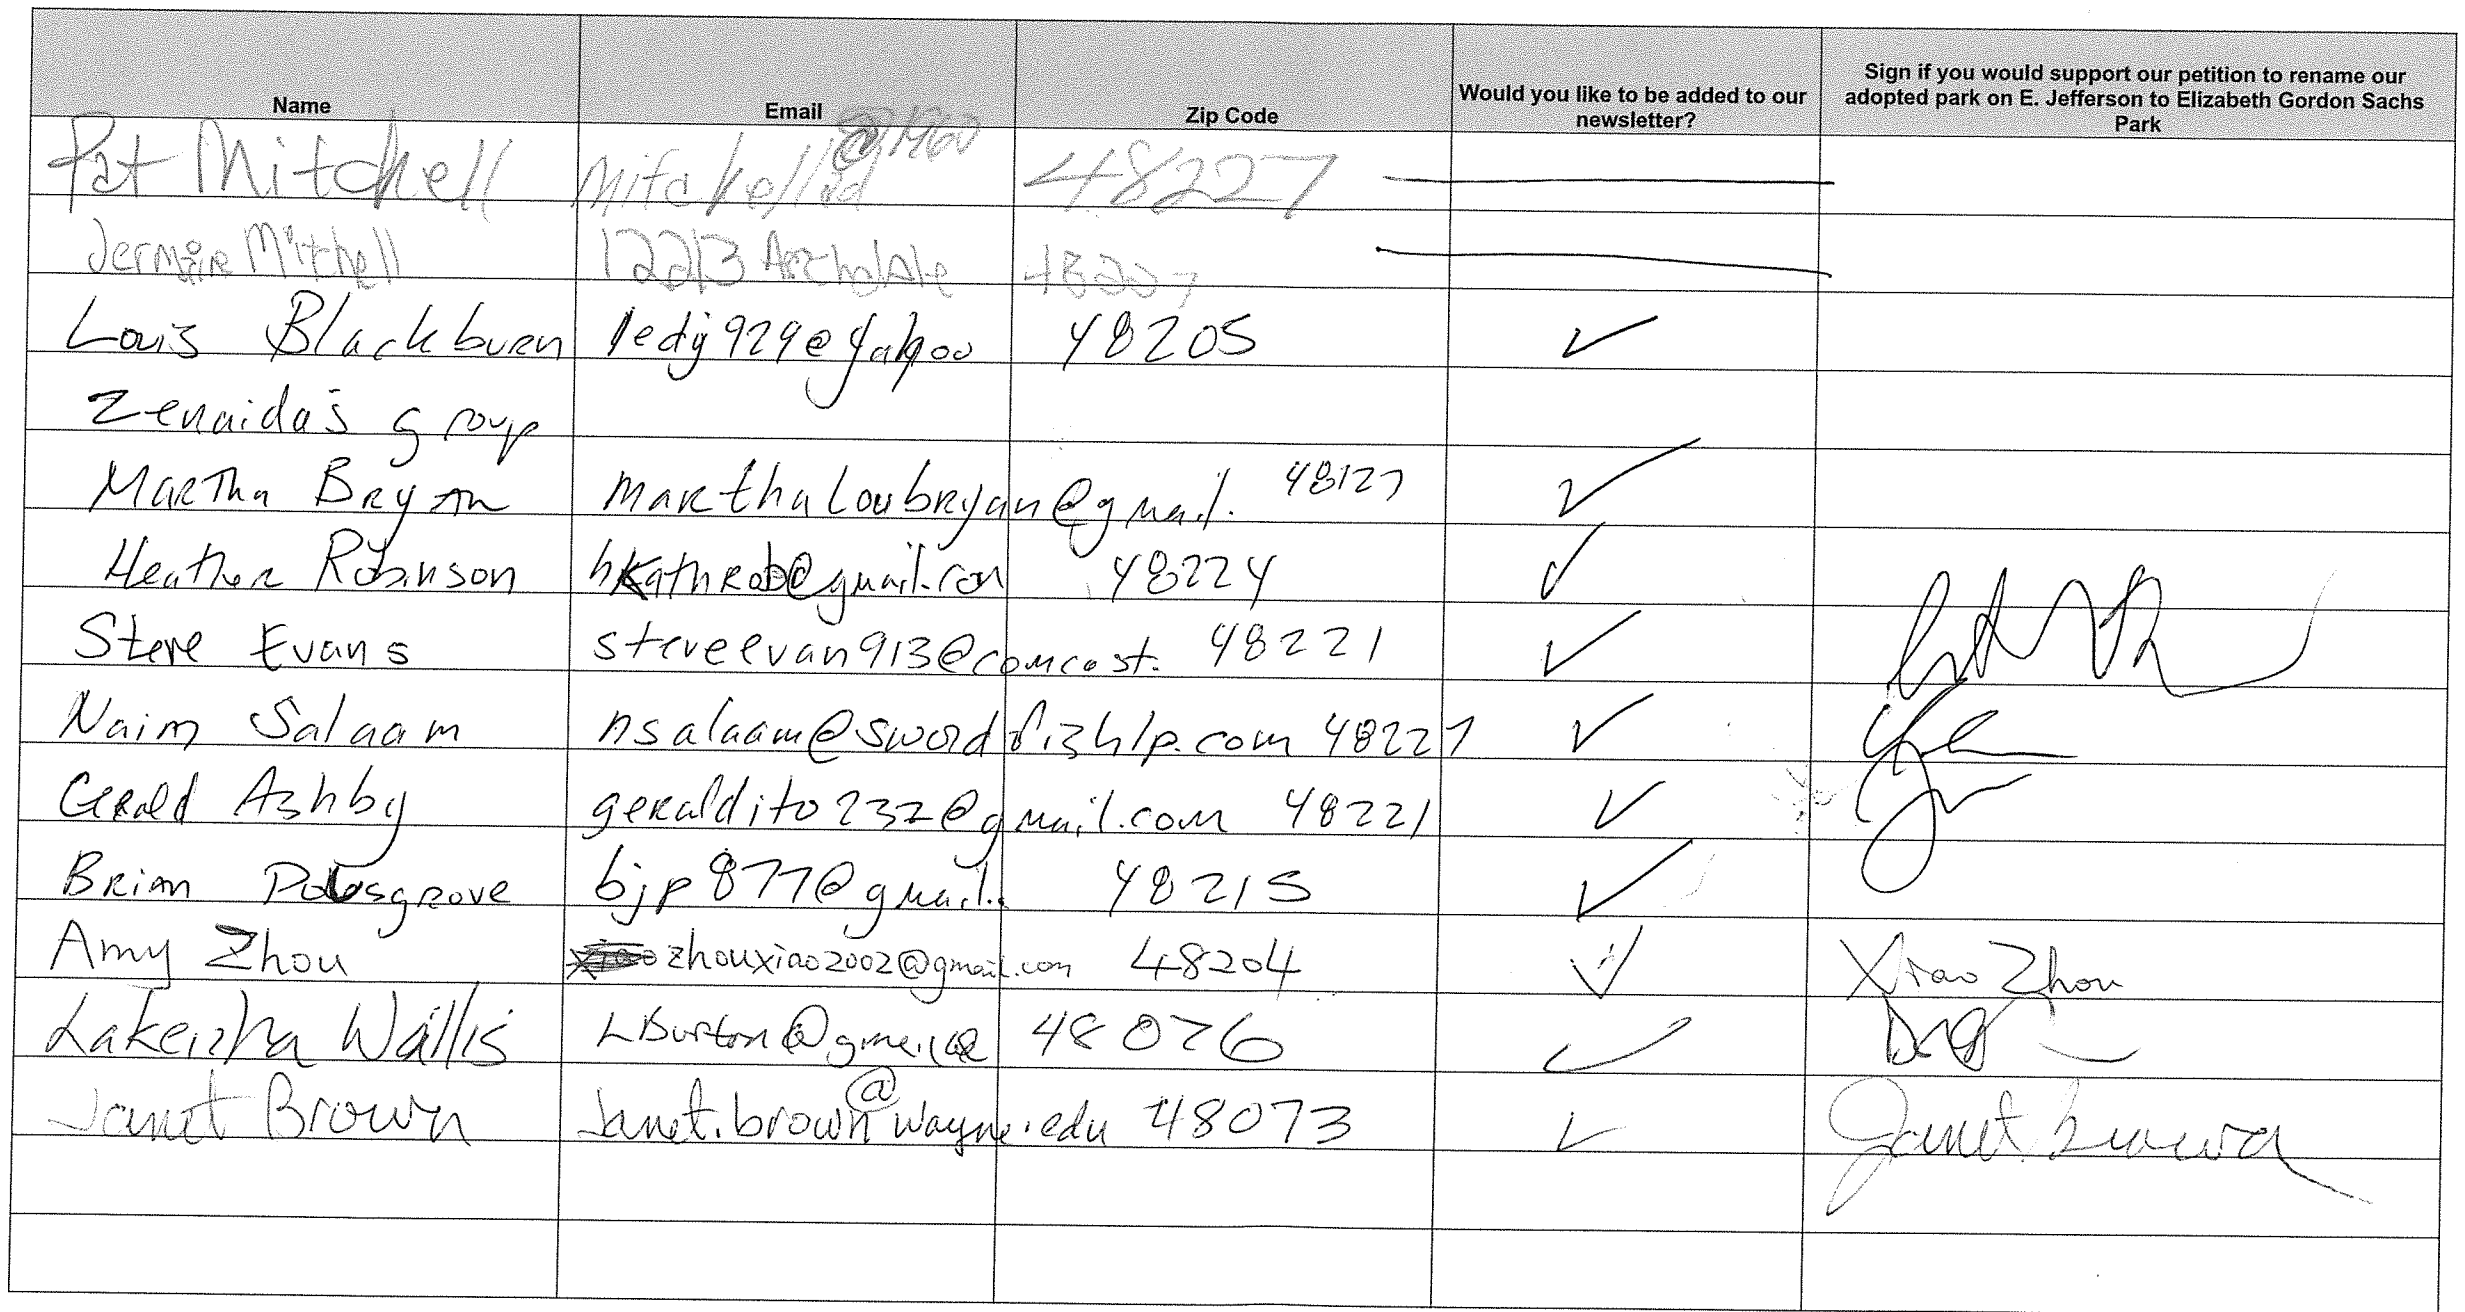 Name Email Zip Code Would you like to be added to our newsletter? Sign if you would support our petition to rename our adopted park on E. Jefferson to Elizabeth Gordon Sachs Park
Pat Mitchell 48227
Jermaine Mitchell 12213 Archdale 48227
Louis Blackburn ledij929@yahoo 48205 ✓
Zenaida's group
Martha Bryan marthaloubryan@gmail. 48127 ✓
Heather Robinson hkathrob@gmail.com 48224 ✓
Steve Evans steveevan913@comcast. 48221 ✓
Naim Salaam nsalaam@swordfishlp.com 48227 ✓
Gerald Ashby geraldito232@gmail.com 48221 ✓
Brian bjp877@gmail. 48215 ✓
Amy Zhou zhouxiao2002@gmail.com 48204 ✓ Xiao Zhou
Lakeisha Wallis LBurton@gmail 48076 ✓
Janet Brown Janet.brown@wayne.edu 48073 ✓ Janet Brown